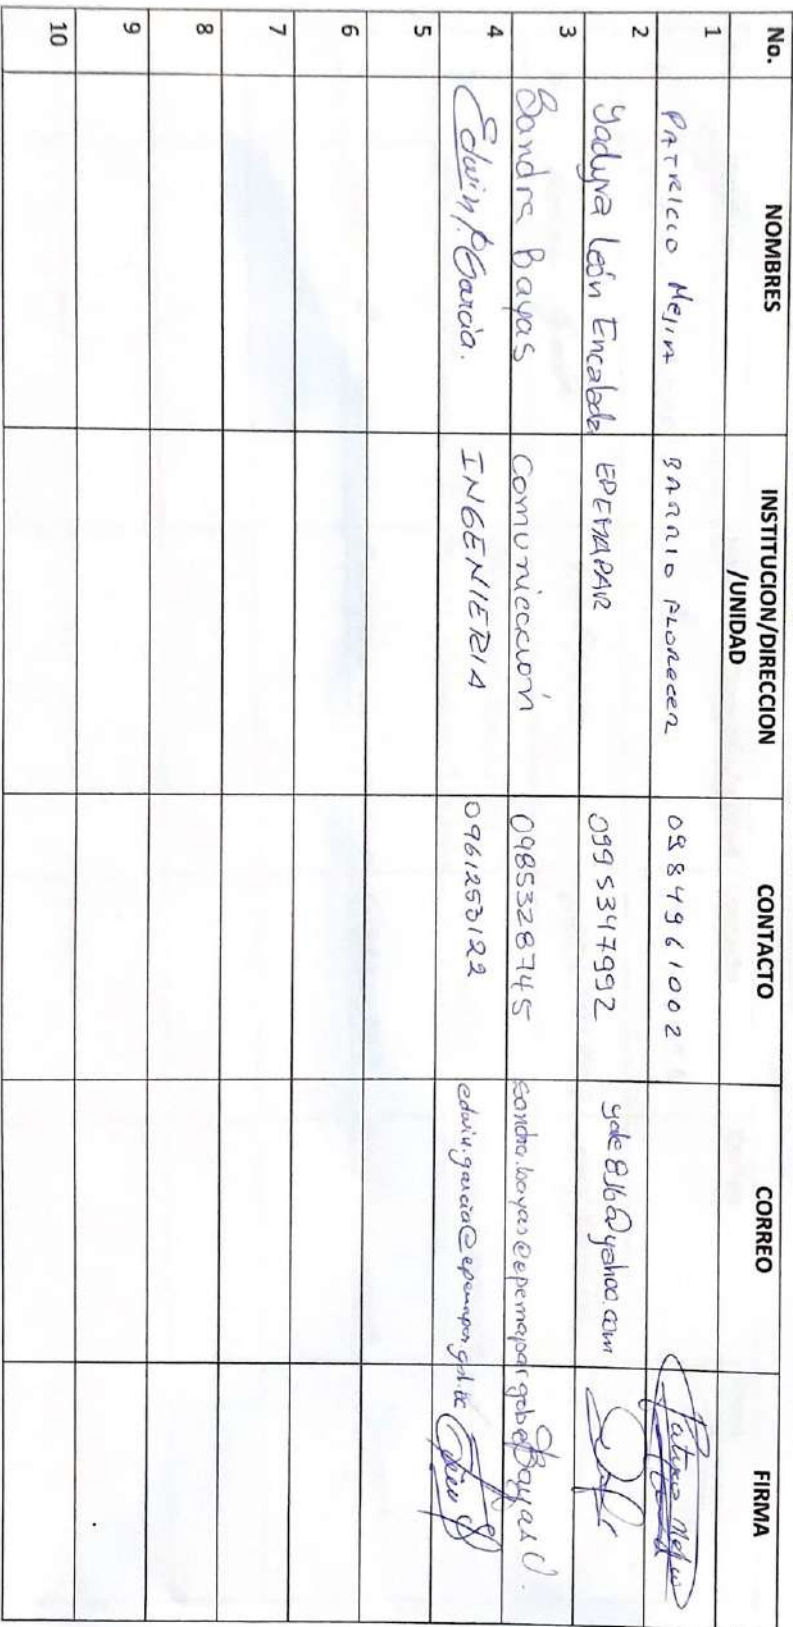 No. NOMBRES INSTITUCION/DIRECCION /UNIDAD CONTACTO CORREO FIRMA
1 PATRICIO MEJIA BARRIO FLORECER 0984961002
2 Yadyra León Encalada EPEMAPAR 0995347992 yale816@yahoo.com
3 Sandra Bayas Comunicación 0985328745 sandra.bayas@epemapar.gob.ec SBayas
4 Edwin P. García. INGENIERIA 0961253122 edwin.garcia@epemapar.gob.ec
5
6
7
8
9
10